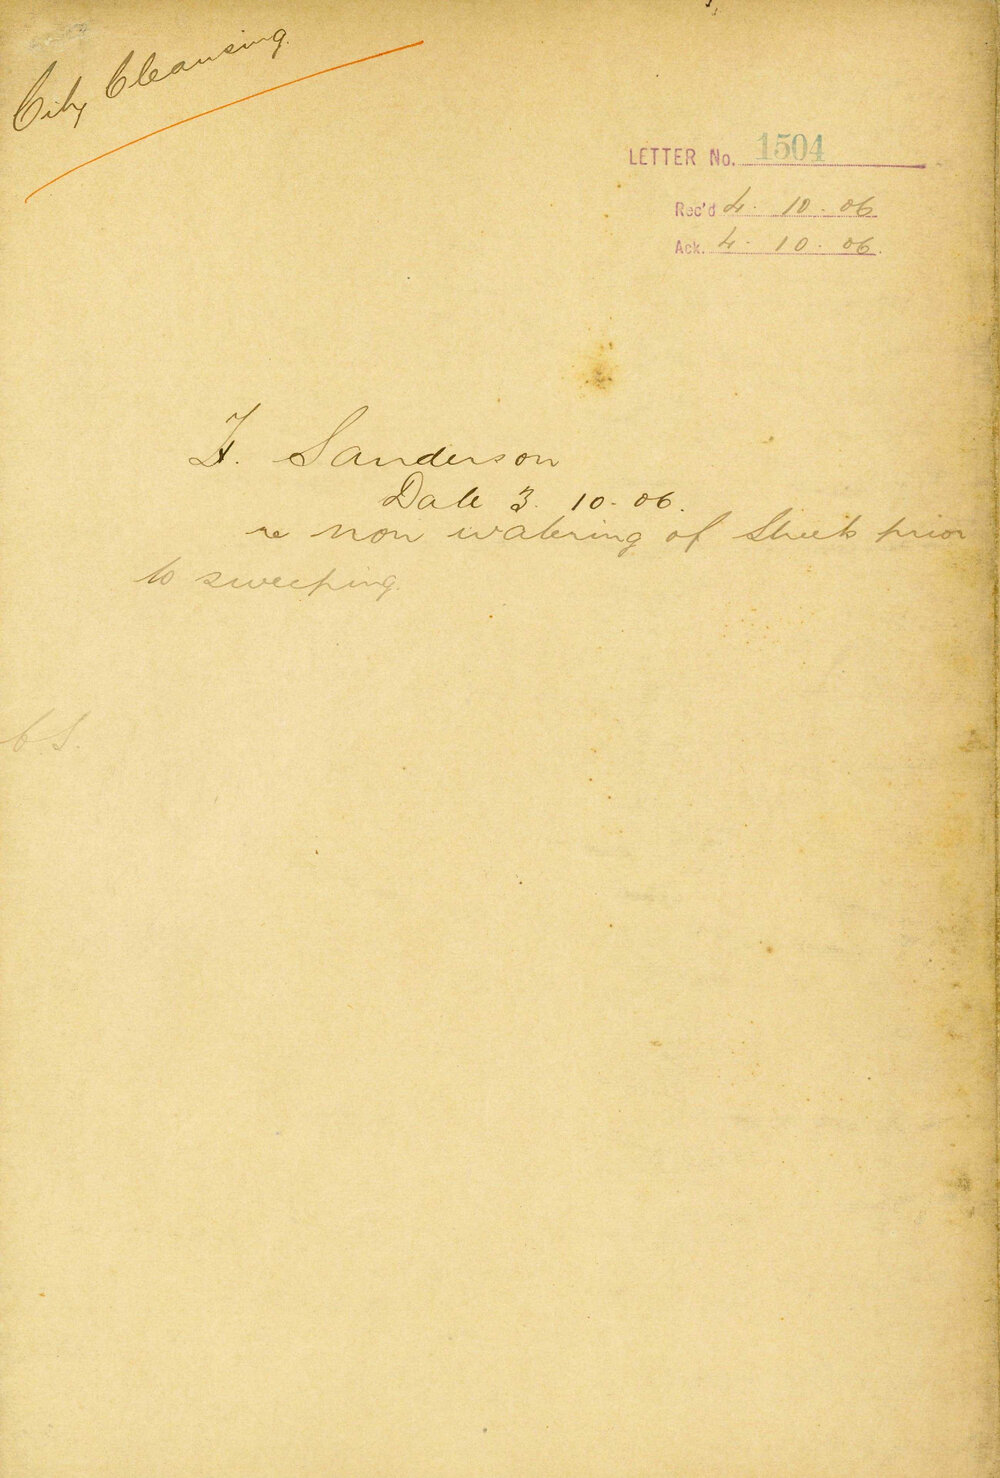 City Cleansing.
LETTER No. 1504
Rec'd 4. 10. 06
Ack. 4. 10. 06.
Sanderson
Date 3. 10. 06.
re non watering of Streets prior
to sweeping.